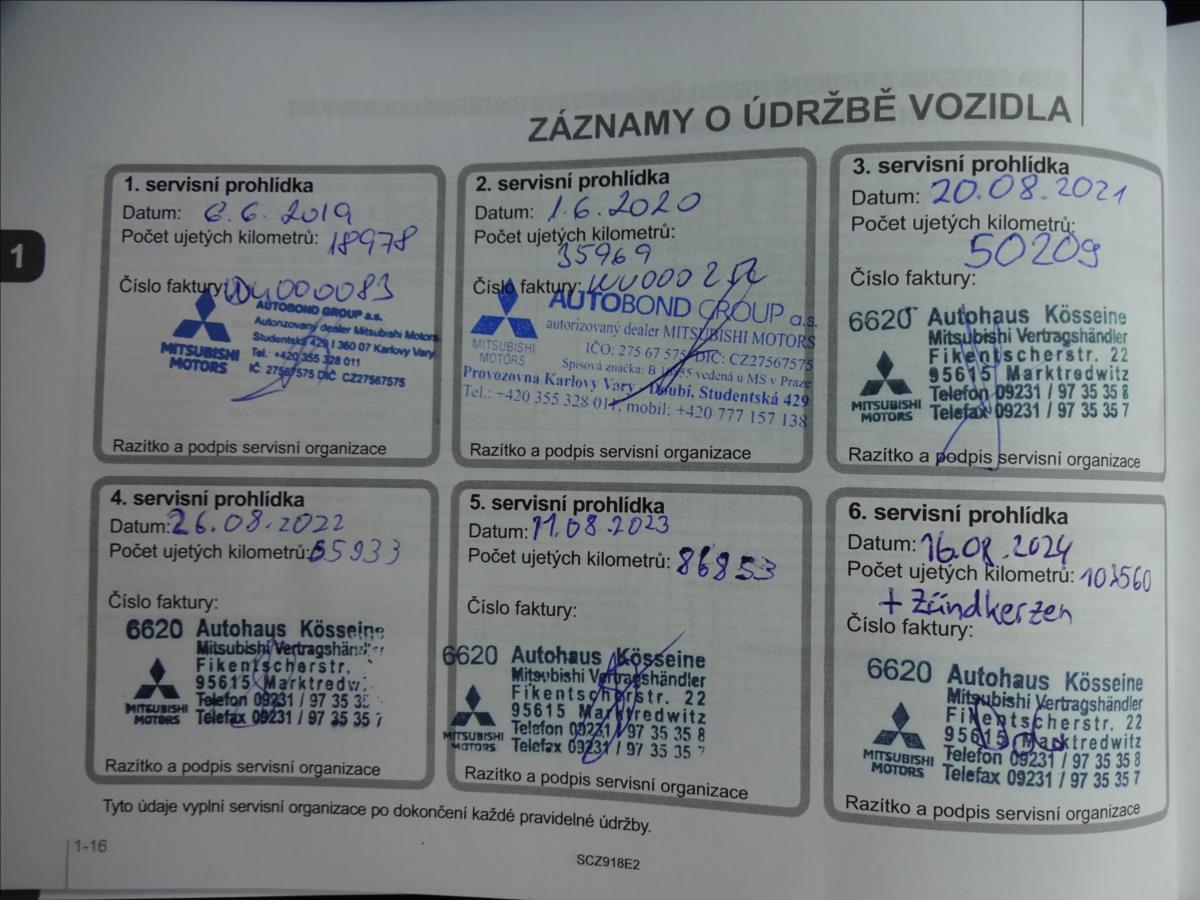 ZÁZNAMY O ÚDRŽBĚ VOZIDLA
1
1. servisní prohlídka
Datum: 6.6.2019
Počet ujetých kilometrů: 18978
Číslo faktury: WU000083
AUTOBOND GROUP a.s.
Autorizovaný dealer Mitsubishi Motors
Studentská 429 I 360 07 Karlovy Vary
Tel. +420 355 328 011
IČ: 27567575 DIČ CZ27567575
MITSUBISHI
MOTORS
Razítko a podpis servisní organizace
2. servisní prohlídka
Datum: 1.6.2020
Počet ujetých kilometrů:
35969
Číslo faktury: WU000252
AUTOBOND GROUP a.s.
autorizovaný dealer MITSUBISHI MOTORS
IČO: 275 67 575 DIČ: CZ27567575
Spisová značka: B vedená u MS v Praze
Provozovna Karlovy Vary - Doubí, Studentská 429
Tel.: +420 355 328 011, mobil: +420 777 157 138
MITSUBISHI
MOTORS
Razítko a podpis servisní organizace
3. servisní prohlídka
Datum: 20.08.2021
Počet ujetých kilometrů:
50209
Číslo faktury:
6620 Autohaus Kösseine
Mitsubishi Vertragshändler
Fikentscherstr. 22
95615 Marktredwitz
Telefon 09231 / 97 35 35 8
Telefax 09231 / 97 35 35 7
MITSUBISHI
MOTORS
Razítko a podpis servisní organizace
4. servisní prohlídka
Datum: 26.08.2022
Počet ujetých kilometrů: 65933
Číslo faktury:
6620 Autohaus Kösseine
Mitsubishi Vertragshändler
Fikentscherstr.
95615 Marktredwi
Telefon 09231 / 97 35 35
Telefax 09231 / 97 35 35 7
MITSUBISHI
MOTORS
Razítko a podpis servisní organizace
5. servisní prohlídka
Datum: 11.08.2023
Počet ujetých kilometrů: 86853
Číslo faktury:
6620 Autohaus Kösseine
Mitsubishi Vertragshändler
Fikentscherstr. 22
95615 Marktredwitz
Telefon 09231 / 97 35 35 8
Telefax 09231 / 97 35 35 7
MITSUBISHI
MOTORS
Razítko a podpis servisní organizace
6. servisní prohlídka
Datum: 16.08.2024
Počet ujetých kilometrů:
+ Zündkerzen
Číslo faktury:
6620 Autohaus Kösseine
Mitsubishi Vertragshändler
Fikentscherstr. 22
95615 Marktredwitz
Telefon 09231 / 97 35 35 8
Telefax 09231 / 97 35 35 7
MITSUBISHI
MOTORS
Razítko a podpis servisní organizace
Tyto údaje vyplní servisní organizace po dokončení každé pravidelné údržby.
1-16
SCZ918E2